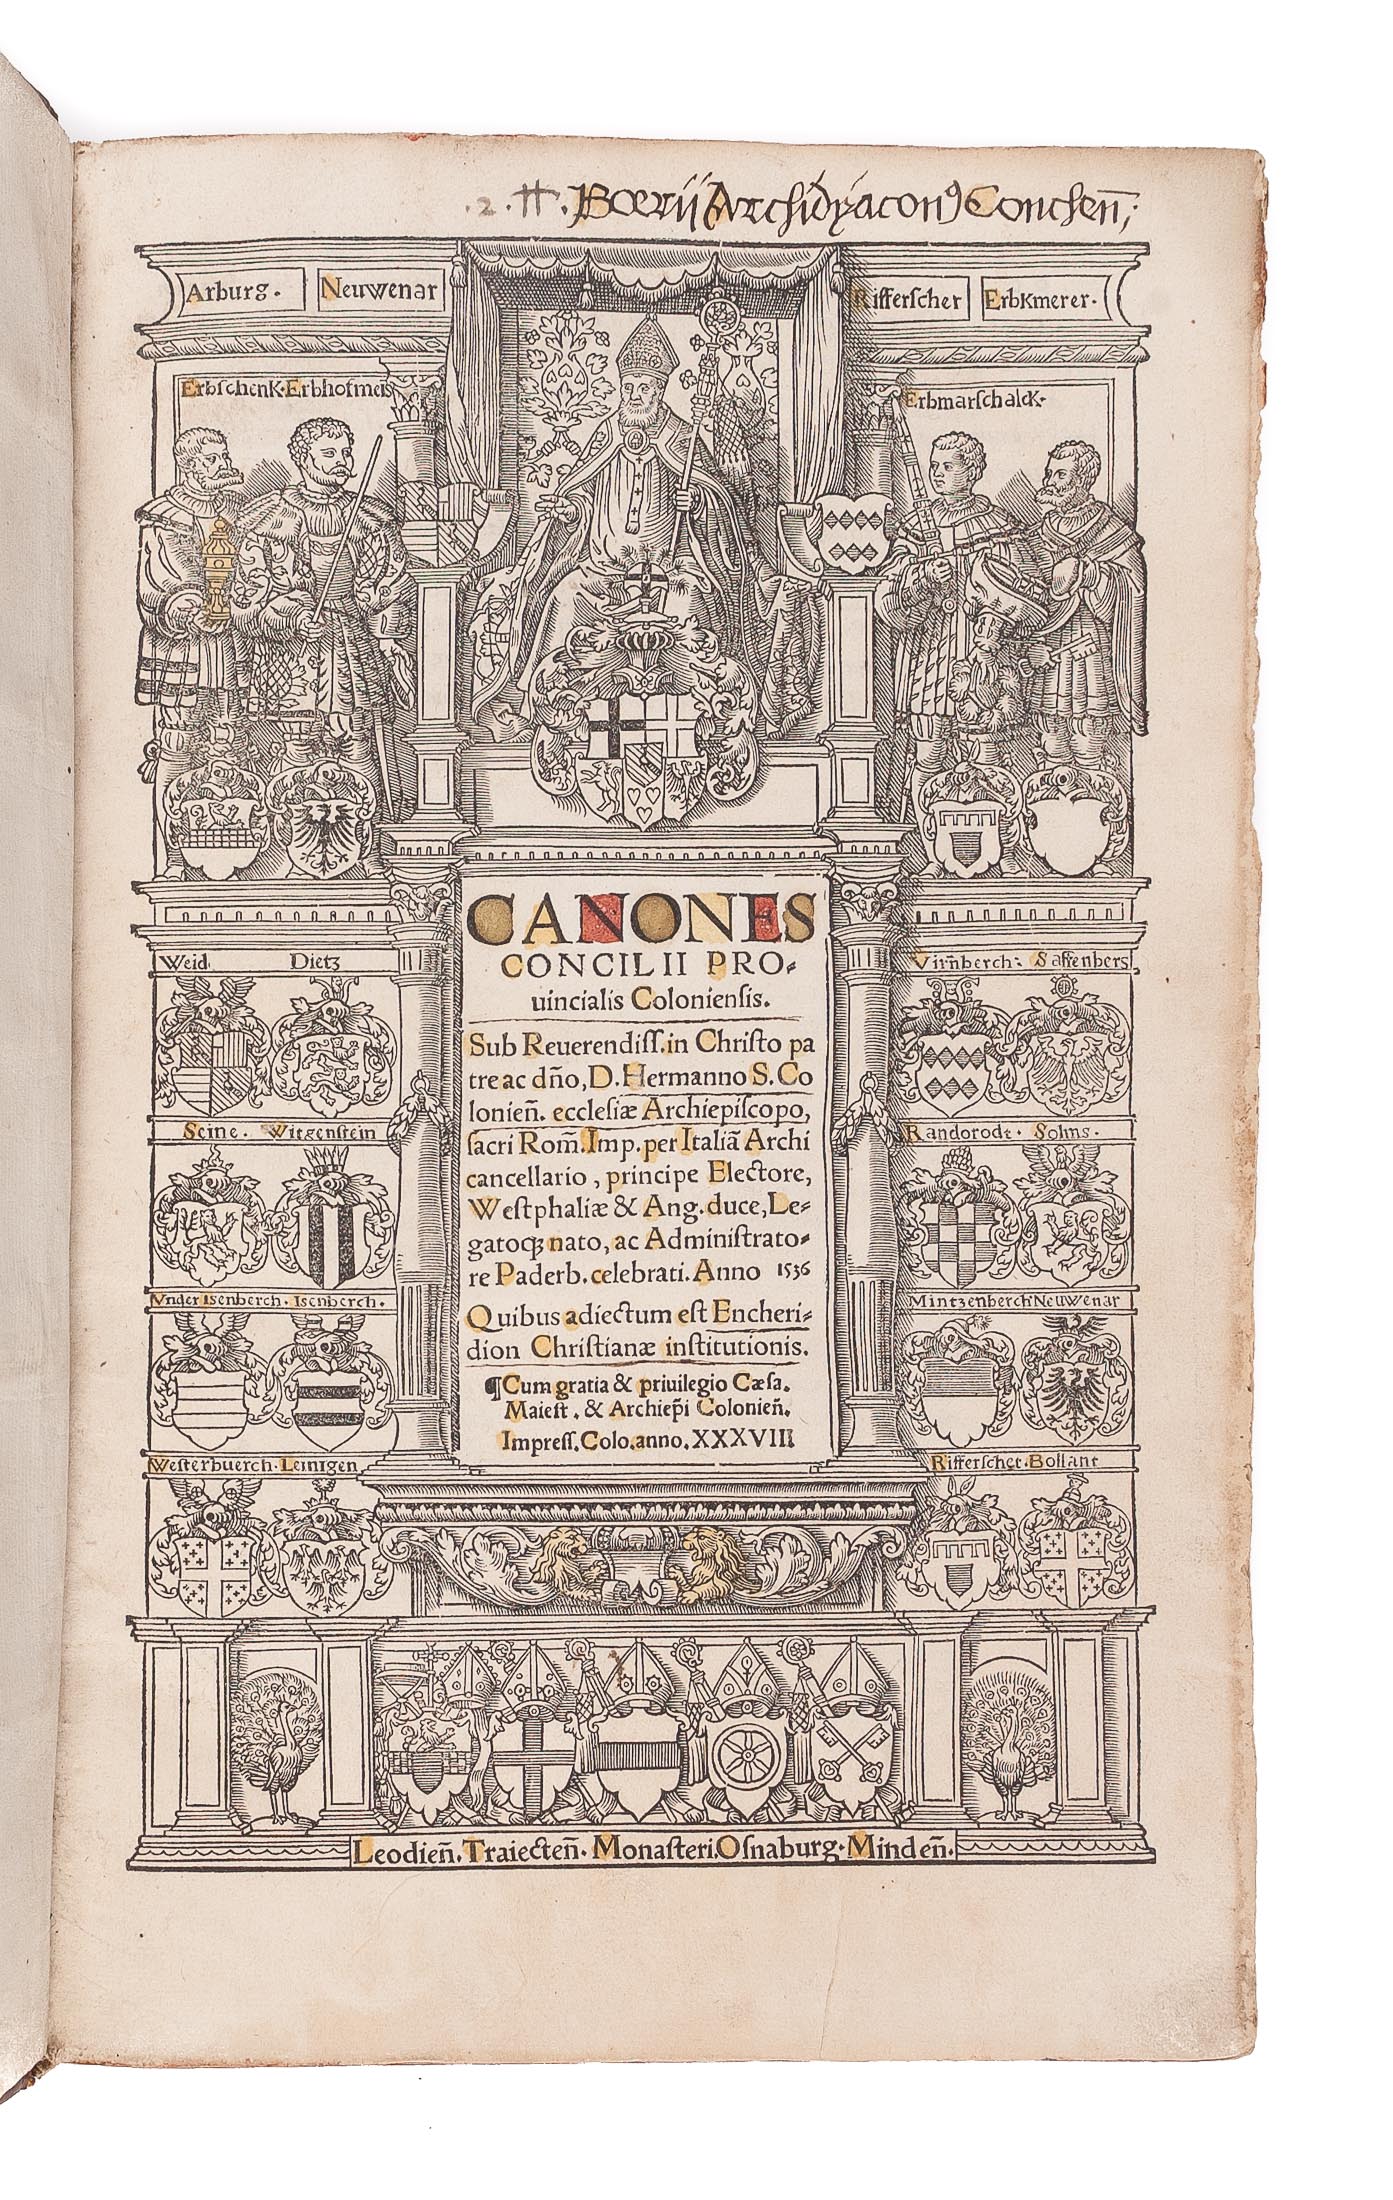 .2. H. Bœrij Archidyacon⁹ Conchen̄;
Arburg. Neuwenar Rifferscher Erbkmerer.
Erbschenk. Erbhofmeis Erbmarschalck.
CANONES
CONCILII PRO-
uincialis Coloniensis.
Sub Reuerendiss. in Christo pa
tre ac dño, D. Hermanno S. Co
lonieñ. ecclesiæ Archiepiscopo,
sacri Rom̃. Imp. per Italiã Archi
cancellario, principe Electore,
Westphaliæ & Ang. duce, Le-
gatoq; nato, ac Administrato-
re Paderb. celebrati. Anno 1536
Quibus adiectum est Encheri-
dion Christianæ institutionis.
¶Cum gratia & priuilegio Cæsa.
Maiest. & Archiep̃i Colonieñ.
Impress. Colo. anno. XXXVIII
Weid Dietz
Seine. Witgenstein
Vnder Isenberch. Isenberch.
Westerbuerch. Leinigen
Virñberch: Saffenbers
Randorodt. Solms.
Mintzenberch Neuwenar
Rifferschet. Bollant
Leodieñ. Traiecteñ. Monasteri. Osnaburg. Mindeñ.